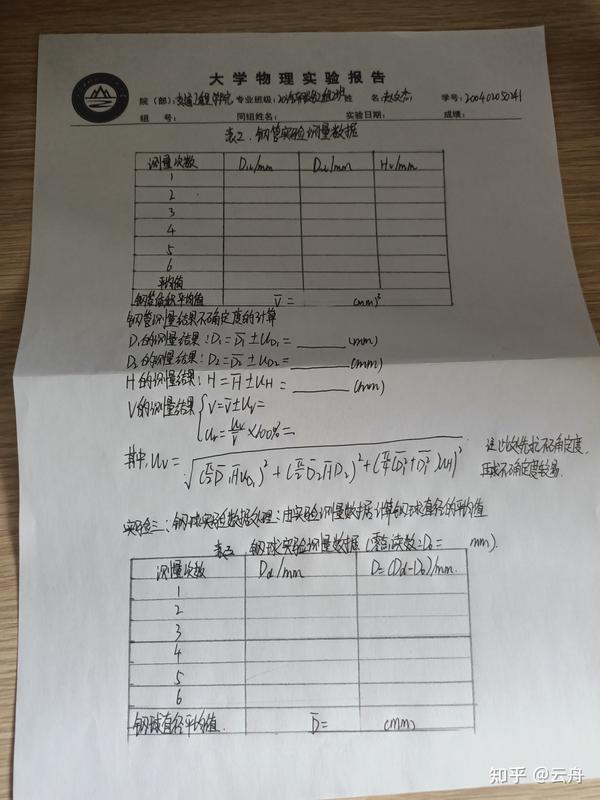 大学物理实验报告
院（部）：交通工程学院 专业班级： 姓 名： 学号：200402050241
组 号： 同组姓名： 实验日期： 成绩：
表2. 钢管实验测量数据
测量次数 D₁ᵢ/mm D₂ᵢ/mm Hᵢ/mm
1
2
3
4
5
6
平均值
钢管体积平均值 V̄ = (mm)³
钢管测量结果不确定度的计算
D₁的测量结果：D₁=D̄₁±u_D₁=______(mm)
D₂的测量结果：D₂=D̄₂±u_D₂=______(mm)
H的测量结果：H=H̄±u_H=______(mm)
V的测量结果 { V=V̄±u_V=
uᵣ=u_V/V̄×100%=
其中，u_V=√((π/2 D̄₁H̄u_D₁)²+(π/2 D̄₂H̄D₂)²+(π/4(D̄₂²+D̄₁²)u_H)²)
不确定度
不确定度较易.
实验三：钢球实验数据处理：由实验测量数据计算钢球直径的平均值
表三. 钢球实验测量数据（零点读数：D₀= mm).
测量次数 Dd/mm D=(Dd-D₀)/mm.
1
2
3
4
5
6
钢球直径平均值. D̄= (mm)
知乎 @云舟